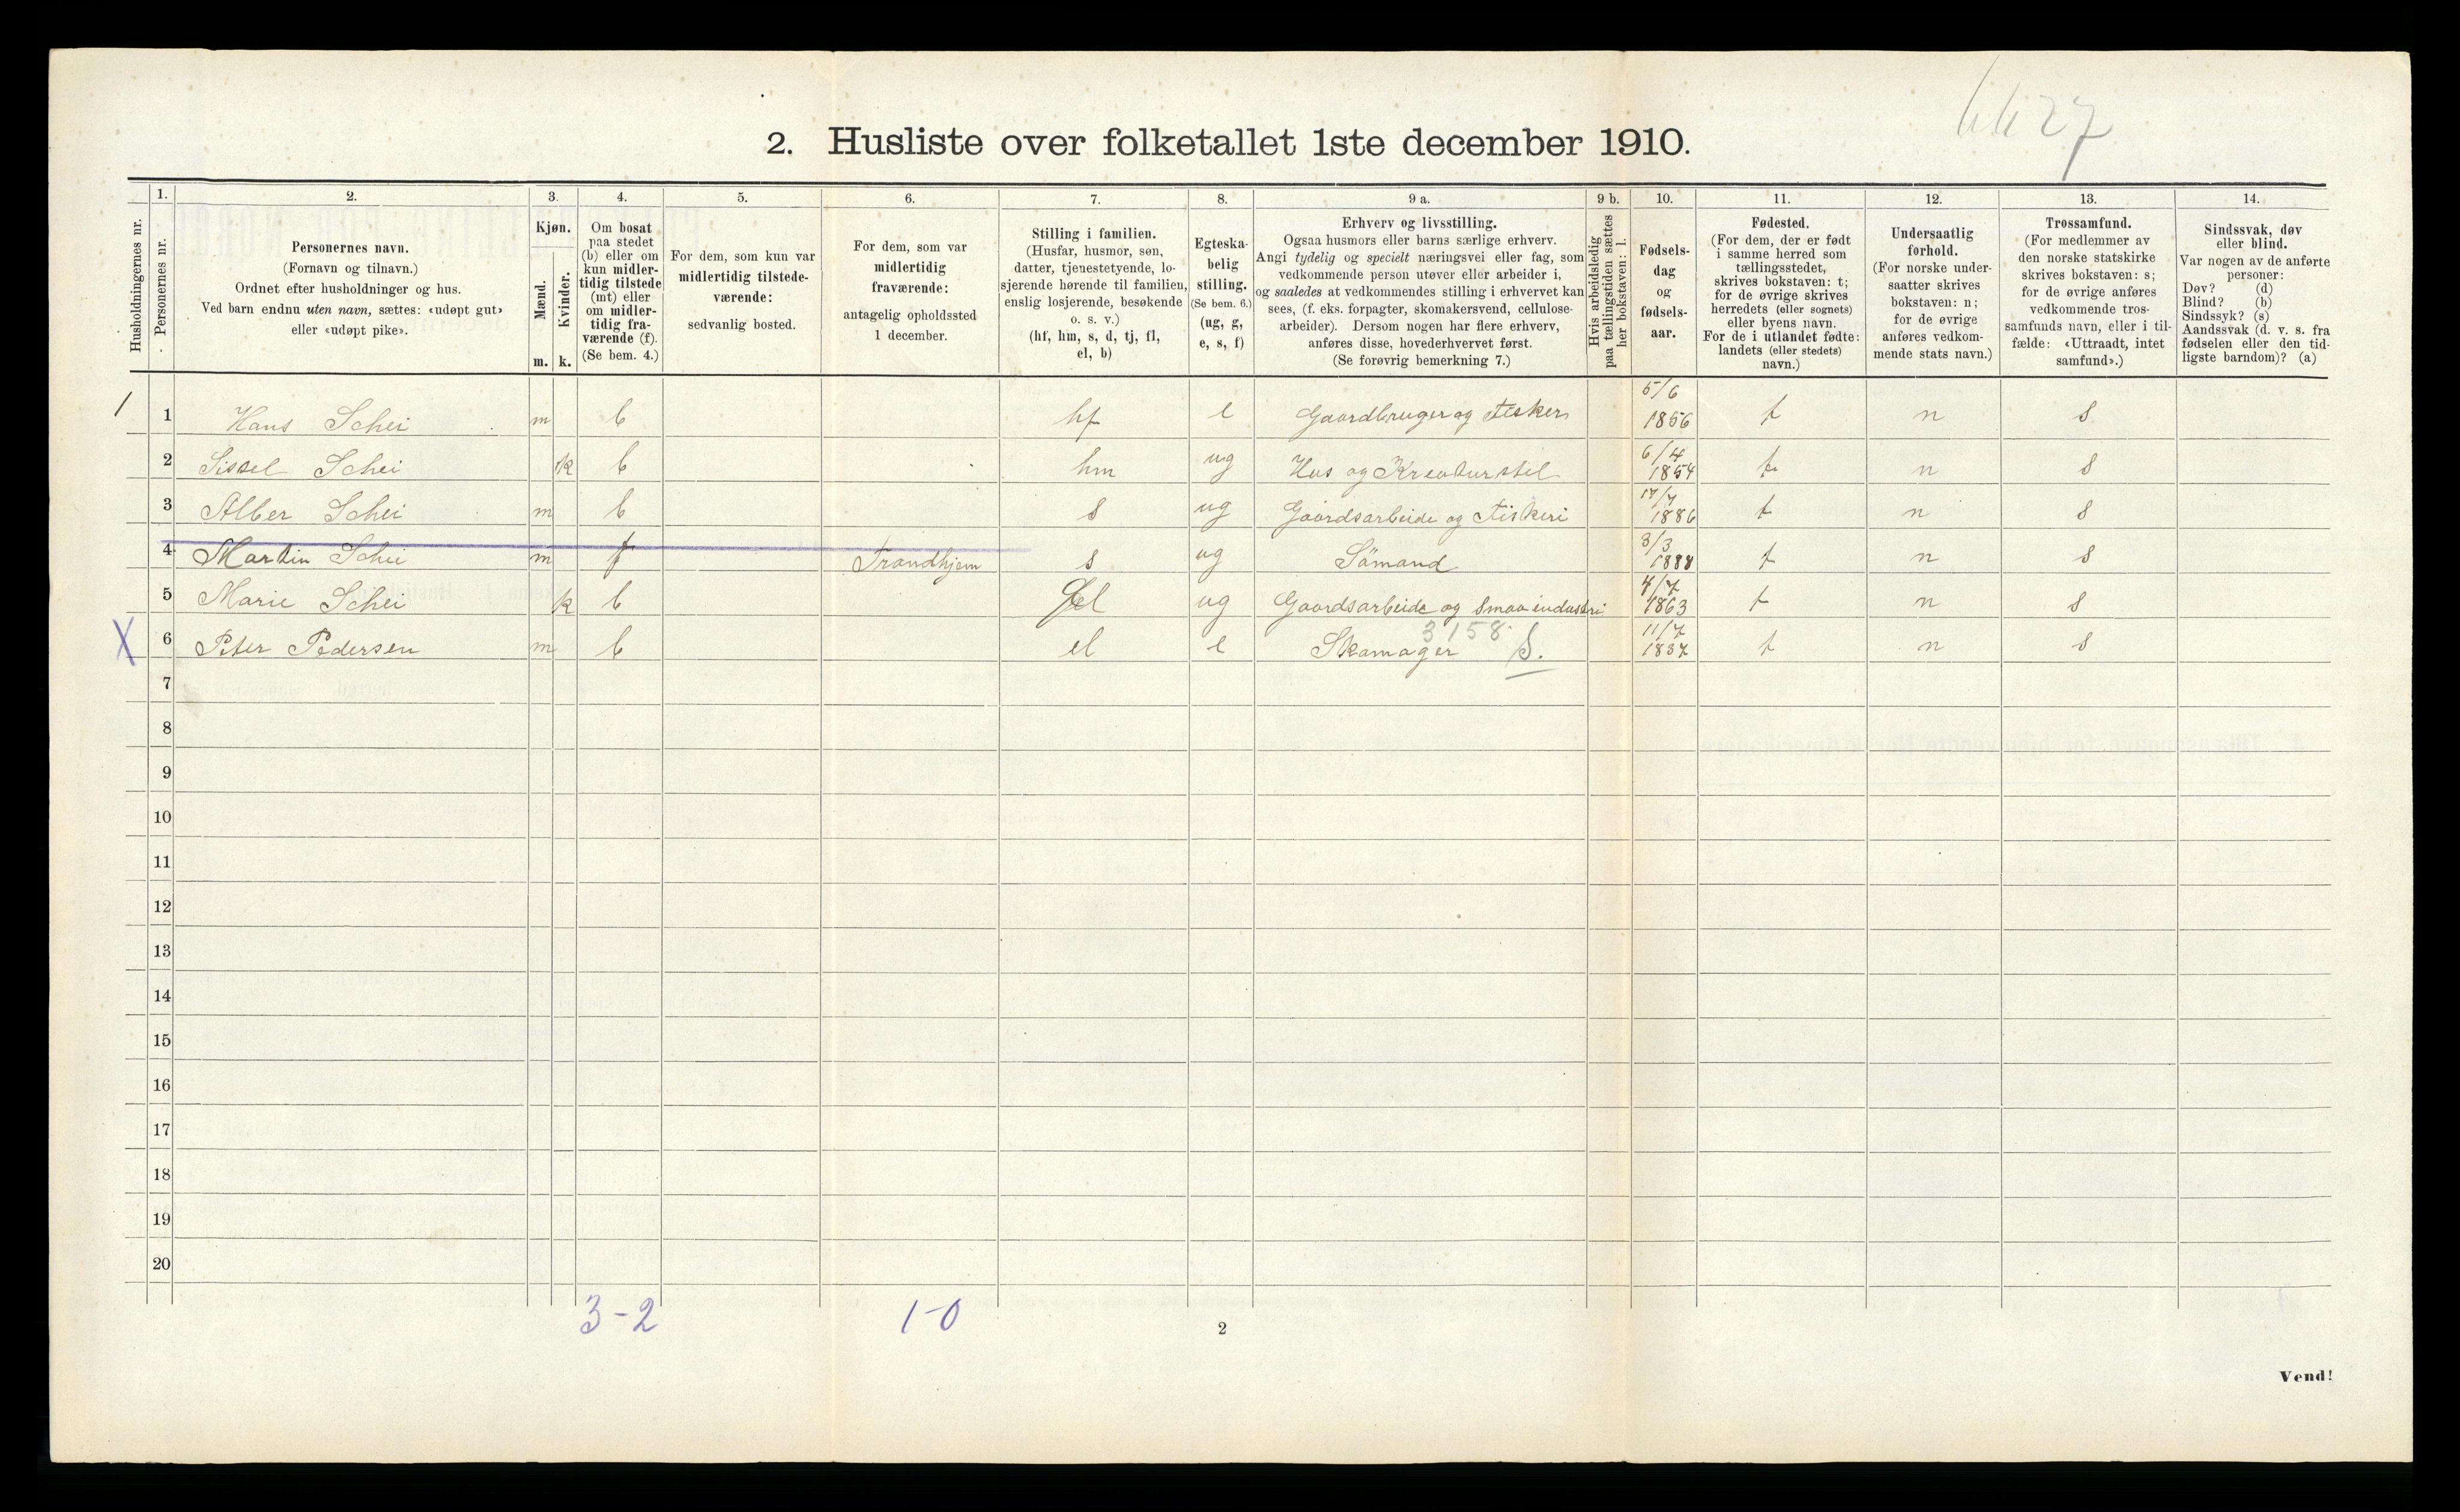 6627
2. Husliste over folketallet 1ste december 1910.
Husholdningernes nr.
1.
Personernes nr.
2.
Personernes navn.
(Fornavn og tilnavn.)
Ordnet efter husholdninger og hus.
Ved barn endnu uten navn, sættes: «udøpt gut»
eller «udøpt pike».
3.
Kjøn.
Mænd.
m.
Kvinder.
k.
4.
Om bosat
paa stedet
(b) eller om
kun midler-
tidig tilstede
(mt) eller
om midler-
tidig fra-
værende (f).
(Se bem. 4.)
5.
For dem, som kun var
midlertidig tilstede-
værende:
sedvanlig bosted.
6.
For dem, som var
midlertidig
fraværende:
antagelig opholdssted
1 december.
7.
Stilling i familien.
(Husfar, husmor, søn,
datter, tjenestetyende, lo-
sjerende hørende til familien,
enslig losjerende, besøkende
o. s. v.)
(hf, hm, s, d, tj, fl,
el, b)
8.
Egteska-
belig
stilling.
(Se bem. 6.)
(ug, g,
e, s, f)
9 a.
Erhverv og livsstilling.
Ogsaa husmors eller barns særlige erhverv.
Angi tydelig og specielt næringsvei eller fag, som
vedkommende person utøver eller arbeider i,
og saaledes at vedkommendes stilling i erhvervet kan
sees, (f. eks. forpagter, skomakersvend, cellulose-
arbeider). Dersom nogen har flere erhverv,
anføres disse, hovederhvervet først.
(Se forøvrig bemerkning 7.)
9 b.
Hvis arbeidsledig
paa tællingstiden sættes
her bokstaven: l.
10.
Fødsels-
dag
og
fødsels-
aar.
11.
Fødested.
(For dem, der er født
i samme herred som
tællingsstedet,
skrives bokstaven: t;
for de øvrige skrives
herredets (eller sognets)
eller byens navn.
For de i utlandet fødte:
landets (eller stedets)
navn.)
12.
Undersaatlig
forhold.
(For norske under-
saatter skrives
bokstaven: n;
for de øvrige
anføres vedkom-
mende stats navn.)
13.
Trossamfund.
(For medlemmer av
den norske statskirke
skrives bokstaven: s;
for de øvrige anføres
vedkommende tros-
samfunds navn, eller i til-
fælde: «Uttraadt, intet
samfund».)
14.
Sindssvak, døv
eller blind.
Var nogen av de anførte
personer:
Døv? (d)
Blind? (b)
Sindssyk? (s)
Aandssvak (d. v. s. fra
fødselen eller den tid-
ligste barndom)? (a)
1 1 Hans Schei m b hf e Gaardbruger og Fisker 5/6 1856 t n s
2 Sissel Schei k b hm ug Hus og Kreaturstel 6/4 1854 t n s
3 Alber Schei m b s ug Gaardsarbeide og Fiskeri 17/7 1886 t n s
4 Martin Schei m f Trondhjem s ug Sömand 3/3 1888 t n s
5 Marie Schei k b el ug Gaardsarbeide og Smaaindustri 4/7 1863 t n s
X 6 Peter Pedersen m b el e Skomager 3158 S. 11/7 1837 t n s
7
8
9
10
11
12
13
14
15
16
17
18
19
20
3-2 1-0
2
Vend!